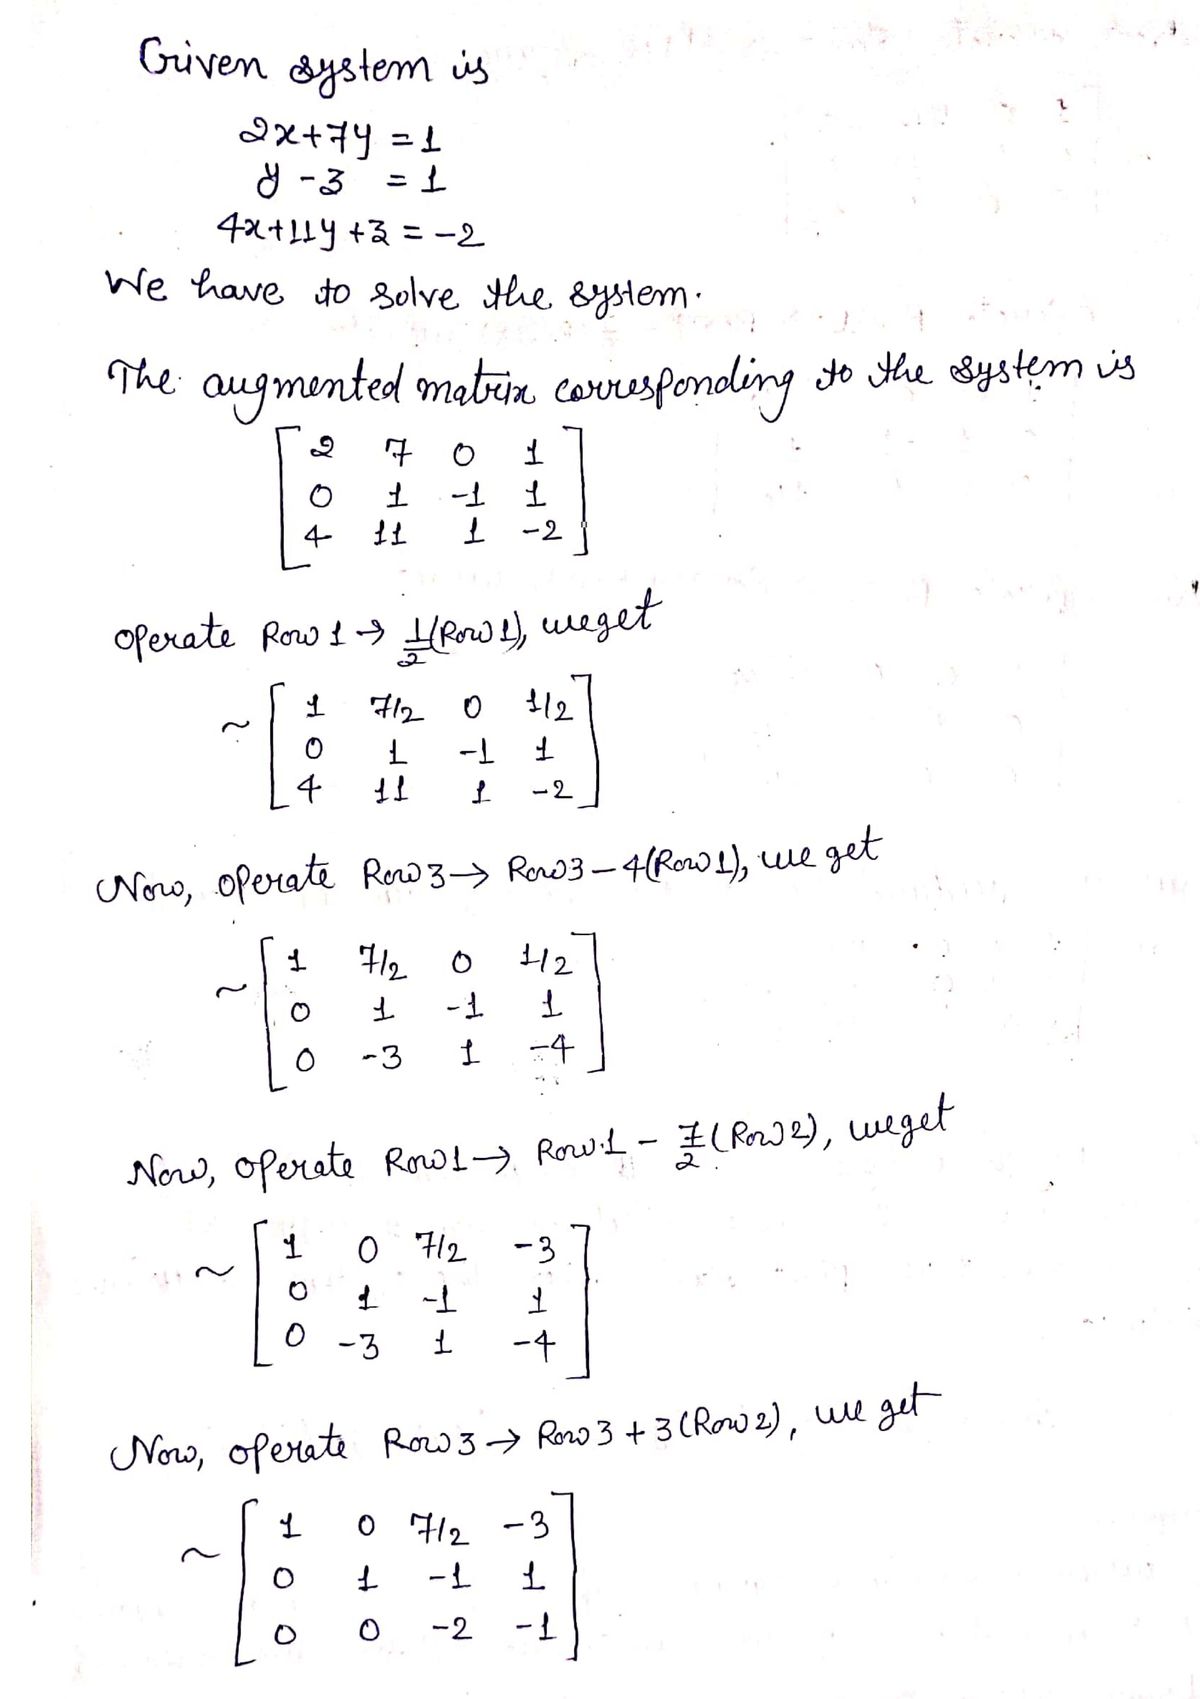 Given system is
2x+7y = 1
y - z = 1
4x+11y + z = -2
We have to solve the system.
The augmented matrix corresponding to the system is
[ 2 7 0 1
0 1 -1 1
4 11 1 -2 ]
operate Row 1 → 1/2 (Row 1), we get
~ [ 1 7/2 0 1/2
0 1 -1 1
4 11 1 -2 ]
Now, operate Row 3 → Row 3 - 4(Row 1), we get
~ [ 1 7/2 0 1/2
0 1 -1 1
0 -3 1 -4 ]
Now, operate Row 1 → Row 1 - 7/2 (Row 2), we get
~ [ 1 0 7/2 -3
0 1 -1 1
0 -3 1 -4 ]
Now, operate Row 3 → Row 3 + 3 (Row 2), we get
~ [ 1 0 7/2 -3
0 1 -1 1
0 0 -2 -1 ]